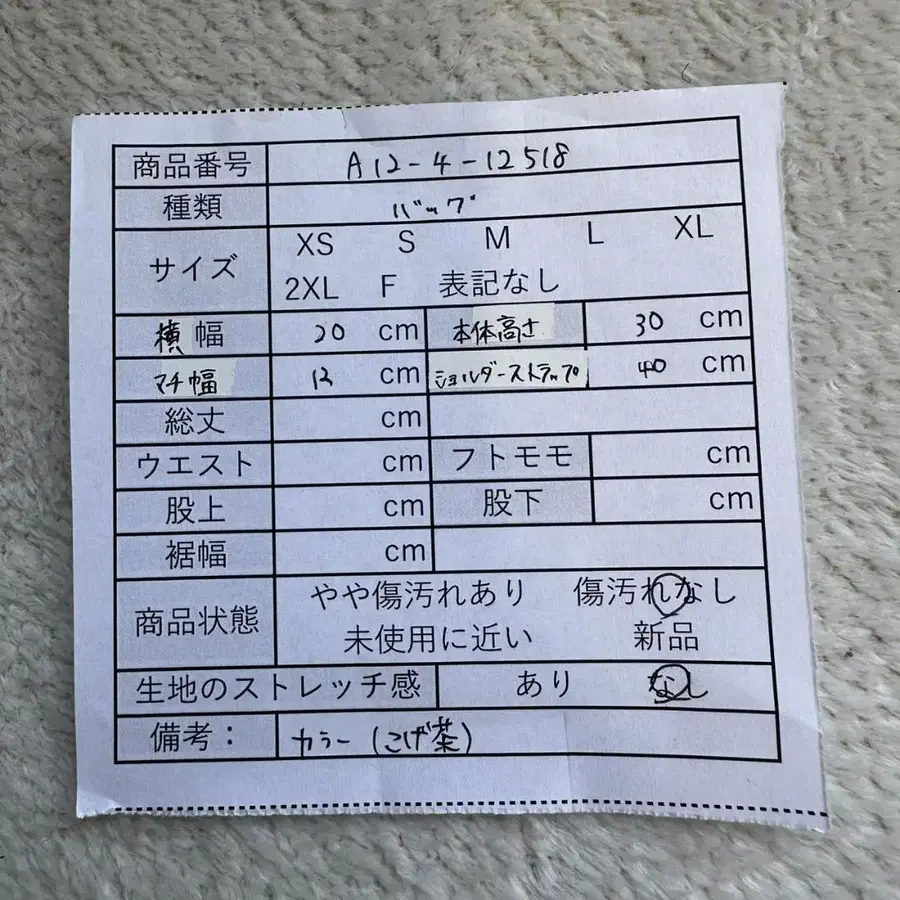 商品番号 A12-4-12518
種類 バッグ
サイズ XS S M L XL
2XL F 表記なし
横幅 20 cm 本体高さ 30 cm
マチ幅 12 cm ショルダーストラップ 40 cm
総丈 cm
ウエスト cm フトモモ cm
股上 cm 股下 cm
裾幅 cm
商品状態 やや傷汚れあり 傷汚れなし
未使用に近い 新品
生地のストレッチ感 あり なし
備考： カラー (こげ茶)